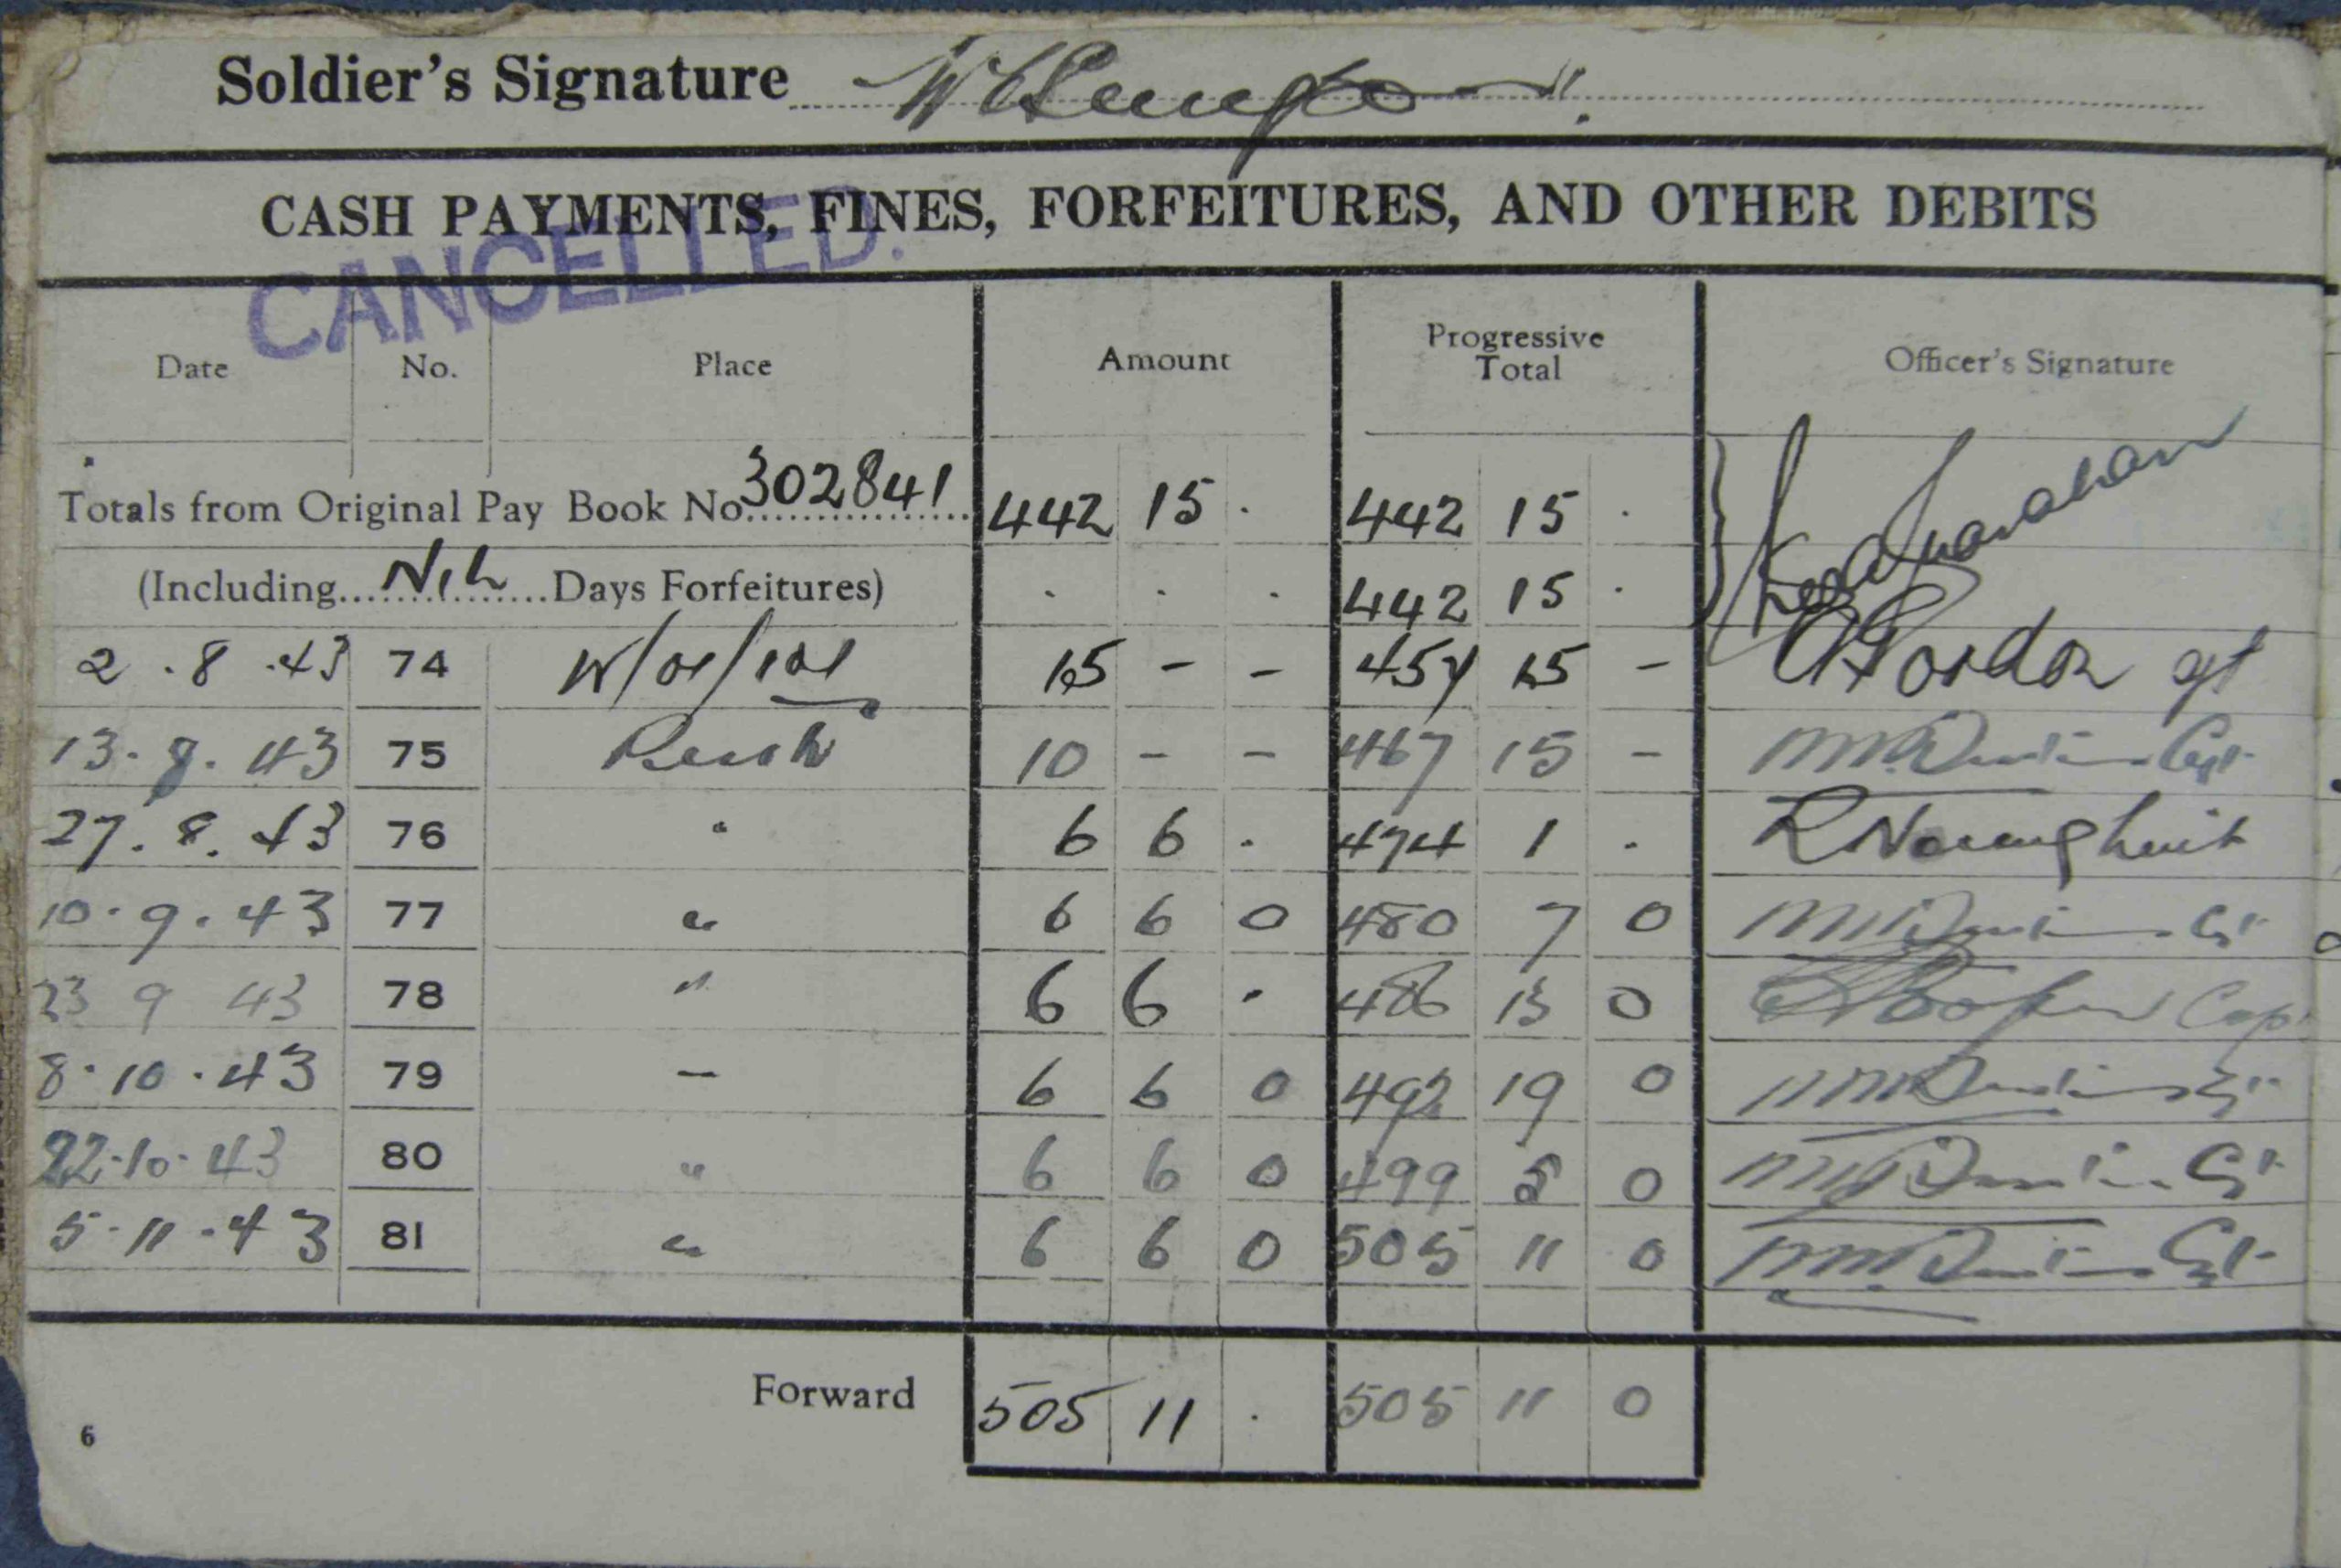 Soldier's Signature
CASH PAYMENTS, FINES, FORFEITURES, AND OTHER DEBITS
CANCELLED.
Date No. Place Amount Progressive Total Officer's Signature
Totals from Original Pay Book No. 302841 442 15 . 442 15 .
(Including Nil Days Forfeitures) . . . 442 15 .
2 . 8 . 43 74 15 - - 457 15 - Gordon
13 . 8 . 43 75 Perth 10 - - 467 15 - Capt
27 . 8 . 43 76 " 6 6 . 474 1 .
10 . 9 . 43 77 " 6 6 0 480 7 0
23 9 43 78 " 6 6 . 486 13 0 Cap
8 . 10 . 43 79 — 6 6 0 492 19 0
22 . 10 . 43 80 " 6 6 0 499 5 0
5 . 11 . 43 81 " 6 6 0 505 11 0
Forward 505 11 . 505 11 0
6